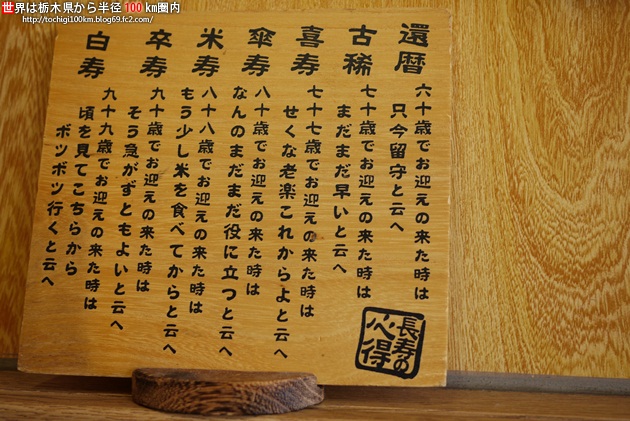 世界は栃木県から半径100km圏内
http://tochigi100km.blog69.fc2.com/
還暦
六十歳でお迎えの来た時は
只今留守と云へ
古稀
七十歳でお迎えの来た時は
まだまだ早いと云へ
喜寿
七十七歳でお迎えの来た時は
せくな老楽これからよと云へ
傘寿
八十歳でお迎えの来た時は
なんのまだまだ役に立つと云へ
米寿
八十八歳でお迎えの来た時は
もう少し米を食べてからと云へ
卒寿
九十歳でお迎えの来た時は
そう急がずともよいと云へ
白寿
九十九歳でお迎えの来た時は
頃を見てこちらから
ボツボツ行くと云へ
長寿の
心得